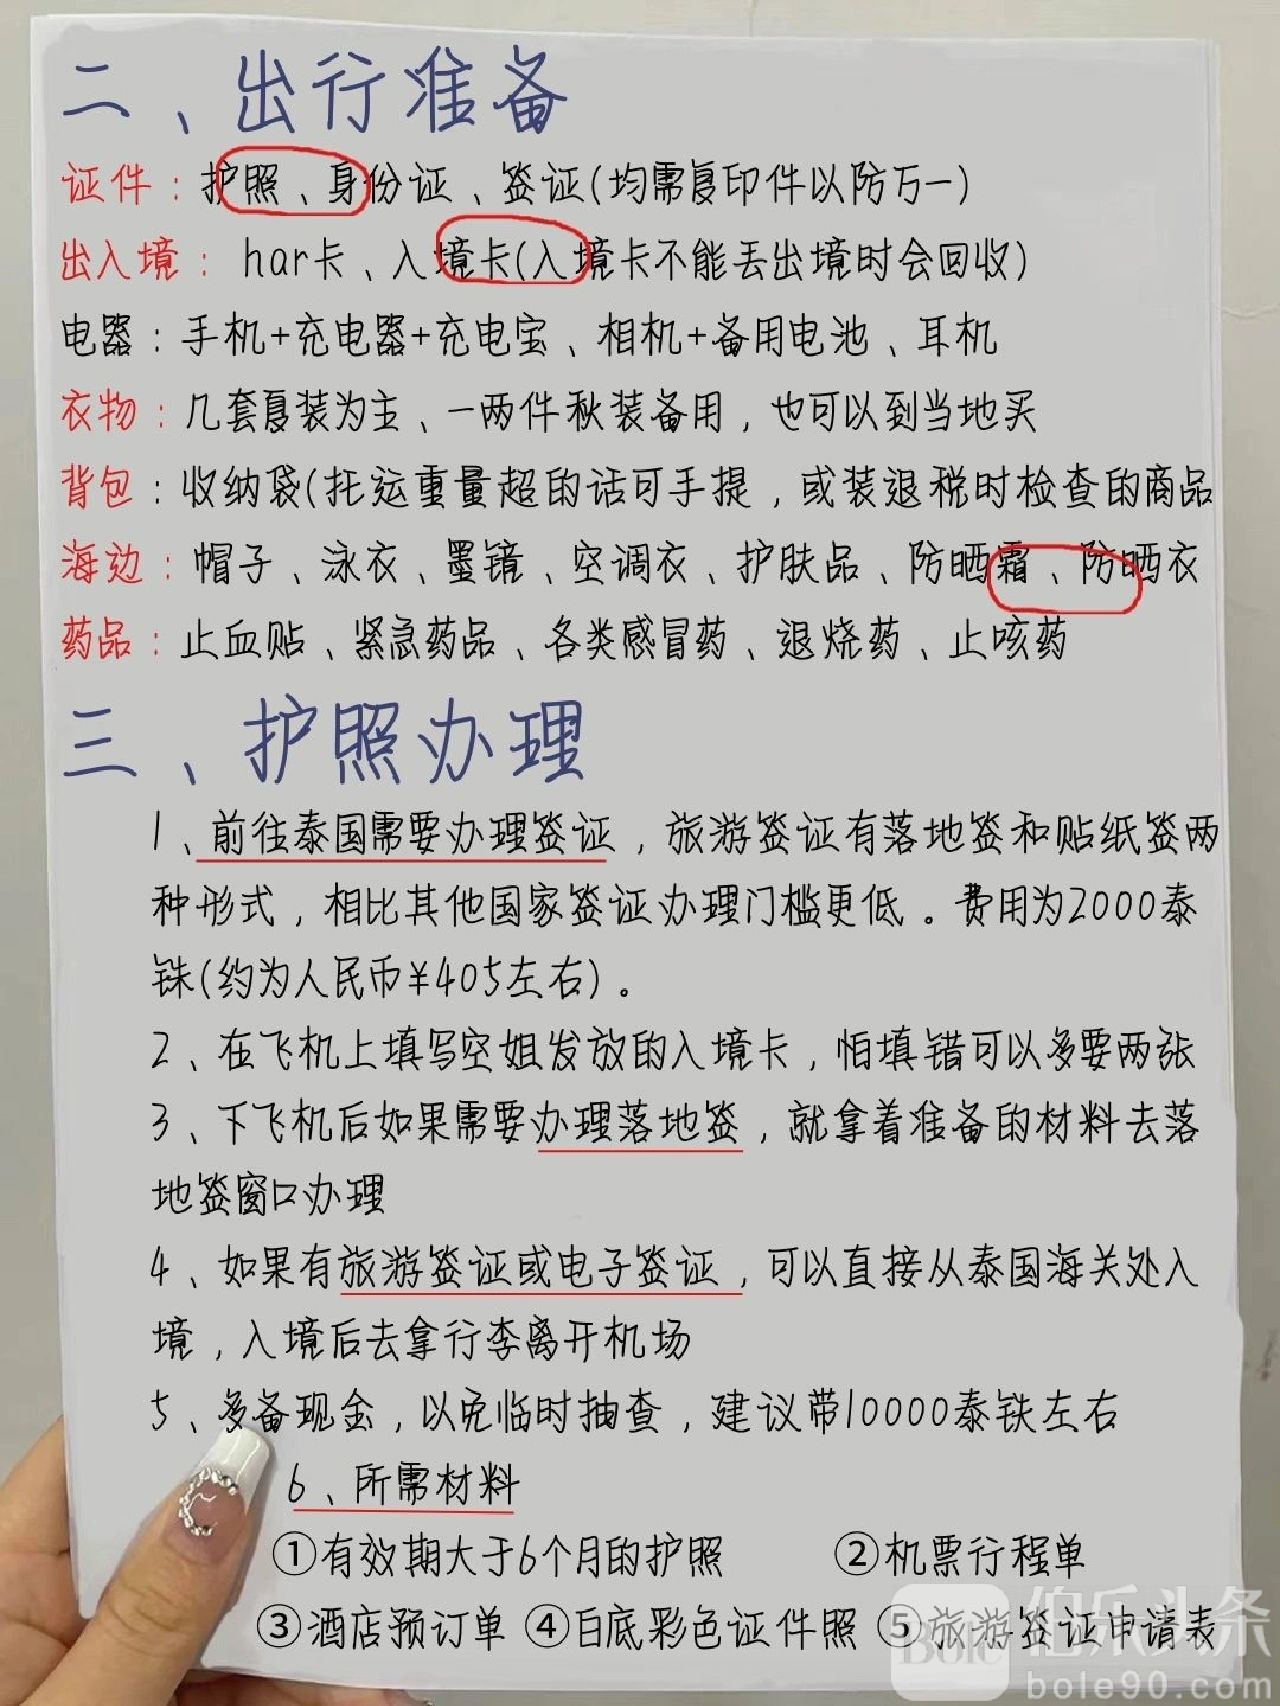 二、出行准备
证件：护照、身份证、签证(均需复印件以防万一)
出入境：har卡、入境卡(入境卡不能丢出境时会回收)
电器：手机+充电器+充电宝、相机+备用电池、耳机
衣物：几套夏装为主、一两件秋装备用，也可以到当地买
背包：收纳袋(托运重量超的话可手提，或装退税时检查的商品
海边：帽子、泳衣、墨镜、空调衣、护肤品、防晒霜、防晒衣
药品：止血贴、紧急药品、各类感冒药、退烧药、止咳药
三、护照办理
1、前往泰国需要办理签证，旅游签证有落地签和贴纸签两
种形式，相比其他国家签证办理门槛更低。费用为2000泰
铢(约为人民币¥405左右)。
2、在飞机上填写空姐发放的入境卡，怕填错可以多要两张
3、下飞机后如果需要办理落地签，就拿着准备的材料去落
地签窗口办理
4、如果有旅游签证或电子签证，可以直接从泰国海关处入
境，入境后去拿行李离开机场
5、多备现金，以免临时抽查，建议带10000泰铢左右
6、所需材料
①有效期大于6个月的护照 ②机票行程单
③酒店预订单 ④白底彩色证件照 ⑤旅游签证申请表
Bole 伯乐头条
bole90.com